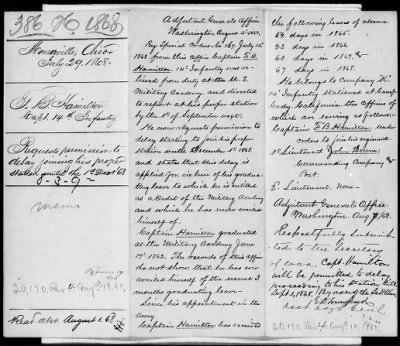 386 H. 1868.
Monroeville, Ohio
July 29, 1868.
F. B. Hamilton
Capt. 14th Infantry
Requests permission to
delay joining his proper
station until the 1st Dec. 68
memo
Read A.G.O. August 1. 68
Adjutant General's Office
Washington August 4, 1868.
By Special Orders No. 169, July 15,
1868, from this office Captain F. B.
Hamilton, 14th Infantry was re-
lieved from duty at the U. S.
Military Academy, and directed
to report at his proper station
by the 1st of September next.
He now requests permission to
delay starting to join his proper
station until December 1st 1868
and states that this delay is
applied for in lieu of his gradua-
ting leave to which he is entitled
as a Cadet of the Military Academy
and which he has never availed
himself of.
Captain Hamilton graduated
at the Military Academy June
17th 1862. The records of this office
do not show that he has ever
availed himself of the usual 3
months graduating leave.
Since his appointment in the
Army
Captain Hamilton has received
the following leaves of absence
59 days in 1865.
32 days in 1866.
60 days in 1867. &
67 days in 1868.
He belongs to Company "H"
14th Infantry stationed at Camp
Cady, California the officers of
which are serving as follows:
Captain F. B. Hamilton, under
orders to join his regiment.
1st Lieutenant
Commanding Company &
Post.
2d Lieutenant. None.
Adjutant General's Office
Washington, Aug. 1868.
Respectfully submit-
ted to the Secretary
of War. Capt. Hamilton
will be permitted to delay
proceeding to his station till
E. D. Townsend